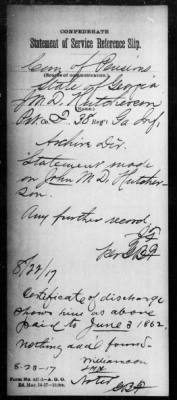 CONFEDERATE
Statement of Service Reference Slip.
Com of Pensions
(Source of communication.)
State of Georgia
J. M. D. Hutcherson
(Name.)
Pvt Co. I, 38 Reg't Ga Inf.
Archive Div.
Statement made
on John M. D. Hutcher-
son.
Any further record,
per
8/22/17
Certificate of discharge
shows him as above
paid to June 3 1862.
Nothing addl found.
Williamson
8-23-17
Form No.
Noted